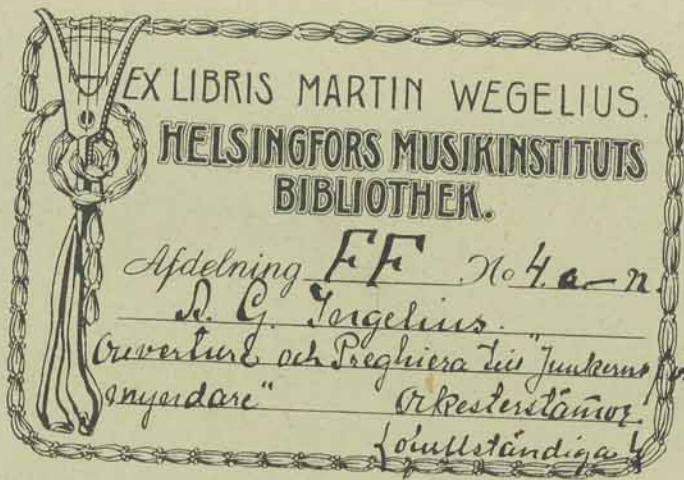 EX LIBRIS MARTIN WEGELIUS.
HELSINGFORS MUSIKINSTITUTS
BIBLIOTHEK.
Afdelning FF No 4. a–n.
A. G. Ingelius.
Ouverture och Preghiera till "Junkerns
myndare" Orkesterstämmor.
(ofullständiga)